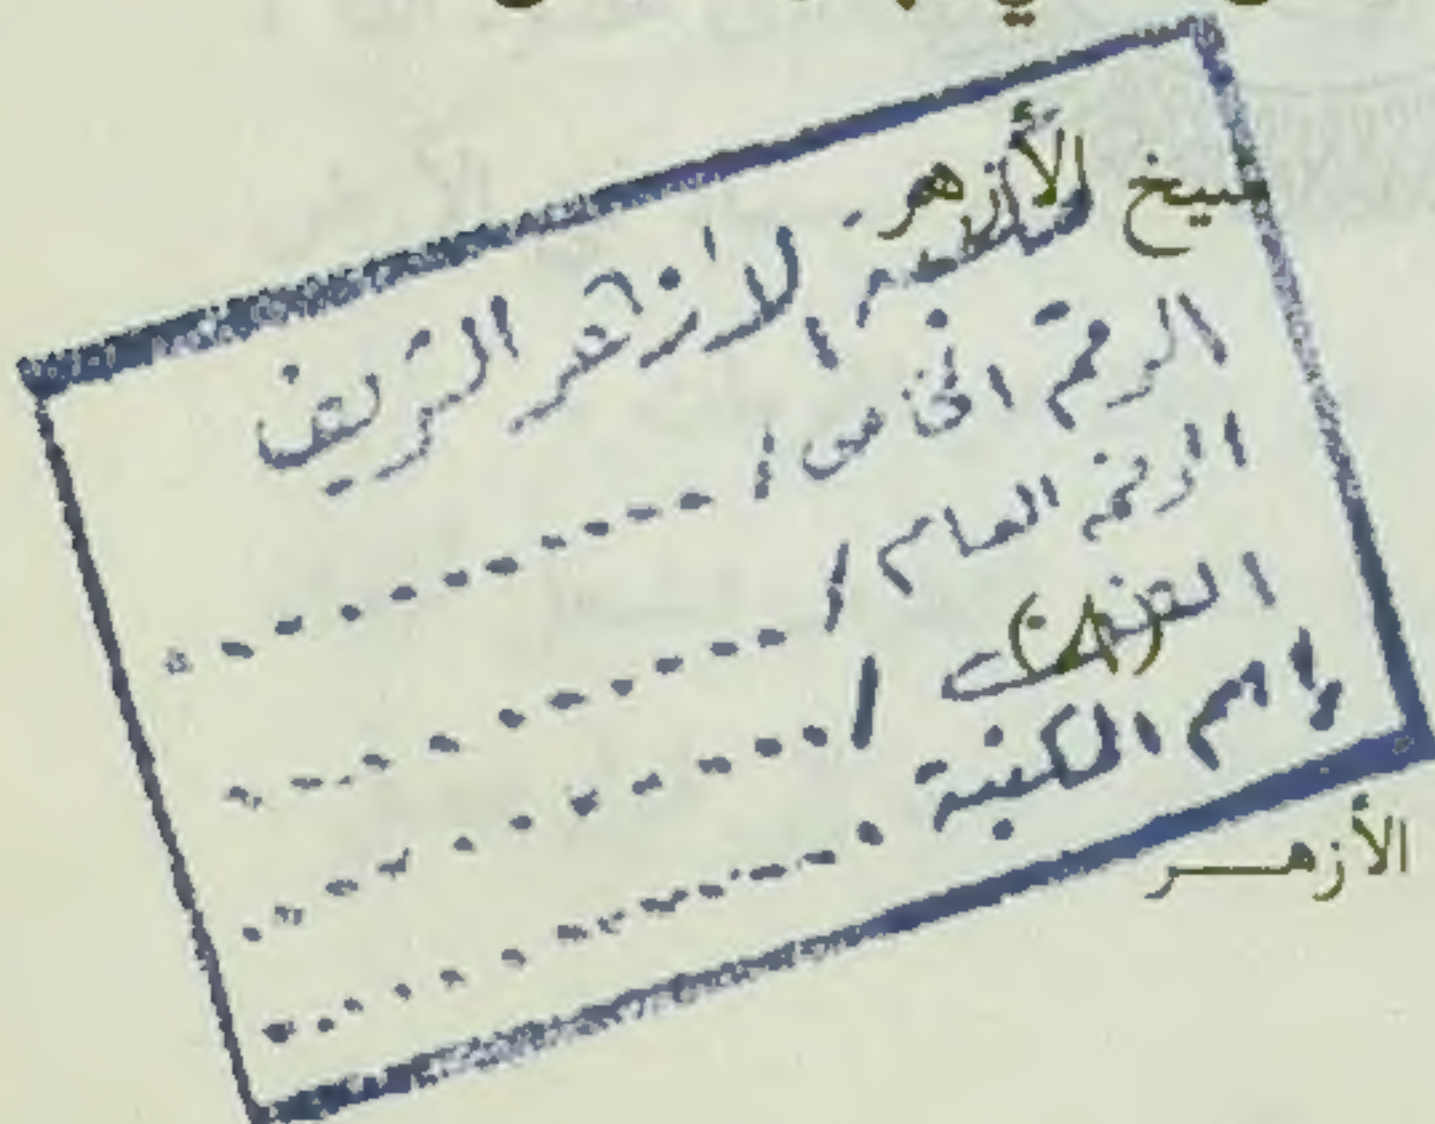 شيخ الأزهر
مكتبة الازهر الشريف
الرقم الخاص /
الرقم العام /
الفن /
إسم المكتبة
(٨)
الأزهــر